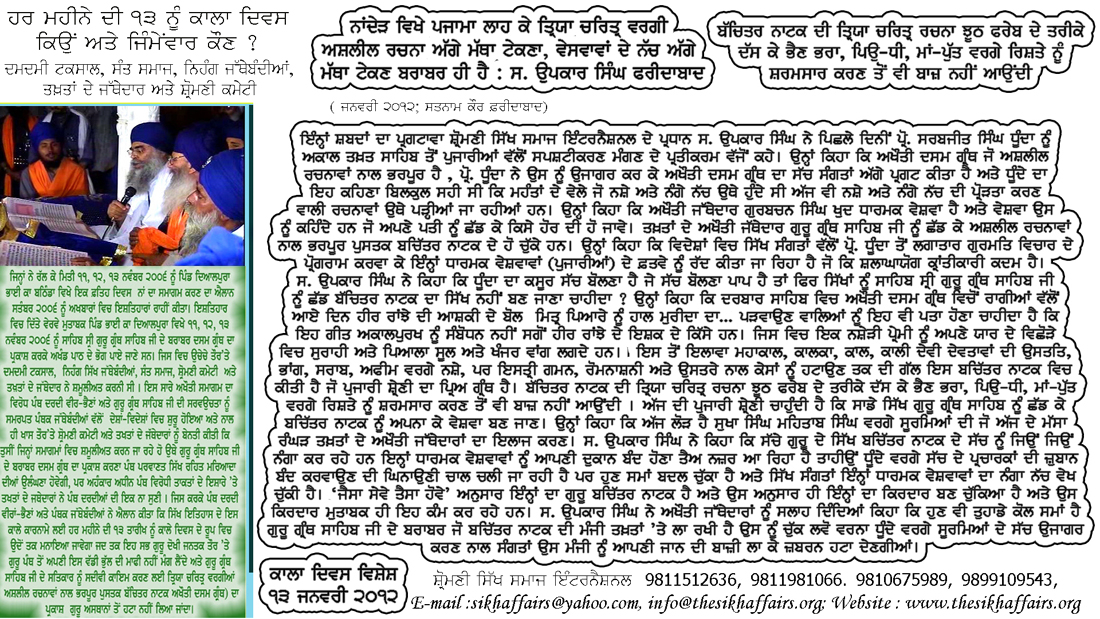 ਹਰ ਮਹੀਨੇ ਦੀ ੧੩ ਨੂੰ ਕਾਲਾ ਦਿਵਸ
ਕਿਉਂ ਅਤੇ ਜਿੰਮੇਂਵਾਰ ਕੌਣ ?
ਦਮਦਮੀ ਟਕਸਾਲ, ਸੰਤ ਸਮਾਜ, ਨਿਹੰਗ ਜੱਥੇਬੰਦੀਆਂ,
ਤਖ਼ਤਾਂ ਦੇ ਜੱਥੇਦਾਰ ਅਤੇ ਸ਼੍ਰੋਮਣੀ ਕਮੇਟੀ
ਜਿਨ੍ਹਾਂ ਨੇ ਰੱਲ ਕੇ ਮਿਤੀ ੧੧, ੧੨, ੧੩ ਨਵੰਬਰ ੨੦੦੬ ਨੂੰ ਪਿੰਡ ਦਿਆਲਪੁਰਾ
ਭਾਈ ਕਾ ਬਠਿੰਡਾ ਵਿਖੇ ਇਕ ਫ਼ਤਿਹ ਦਿਵਸ ਨਾਂ ਦਾ ਸਮਾਗਮ ਕਰਣ ਦਾ ਐਲਾਨ
ਸਤੰਬਰ ੨੦੦੬ ਨੂੰ ਅਖਬਾਰਾਂ ਵਿਚ ਇਸ਼ਤਿਹਾਰਾਂ ਰਾਹੀਂ ਕੀਤਾ। ਇਸ਼ਤਿਹਾਰ
ਵਿਚ ਦਿੱਤੇ ਵੇਰਵੇ ਮੁਤਾਬਕ ਪਿੰਡ ਭਾਈ ਕਾ ਦਿਆਲਪੁਰਾ ਵਿਖੇ ੧੧, ੧੨, ੧੩
ਨਵੰਬਰ ੨੦੦੬ ਨੂੰ ਸਾਹਿਬ ਸ੍ਰੀ ਗੁਰੂ ਗ੍ਰੰਥ ਸਾਹਿਬ ਜੀ ਦੇ ਬਰਾਬਰ ਦਸਮ ਗ੍ਰੰਥ ਦਾ
ਪ੍ਰਕਾਸ਼ ਕਰਕੇ ਅਖੰਡ ਪਾਠ ਦੇ ਭੋਗ ਪਾਏ ਜਾਣੇ ਸਨ। ਜਿਸ ਵਿਚ ਉਚੇਚੇ ਤੌਰ'ਤੇ
ਦਮਦਮੀ ਟਕਸਾਲ, ਨਿਹੰਗ ਸਿੱਖ ਜੱਥੇਬੰਦੀਆਂ, ਸੰਤ ਸਮਾਜ, ਸ਼੍ਰੋਮਣੀ ਕਮੇਟੀ ਅਤੇ
ਤਖ਼ਤਾਂ ਦੇ ਜੱਥੇਦਾਰਾਂ ਨੇ ਸ਼ਮੂਲੀਅਤ ਕਰਨੀ ਸੀ। ਇਸ ਸਾਰੇ ਅਖੌਤੀ ਸਮਾਗਮ ਦਾ
ਵਿਰੋਧ ਪੰਥ ਦਰਦੀ ਵੀਰ-ਭੈਣਾਂ ਅਤੇ ਗੁਰੂ ਗ੍ਰੰਥ ਸਾਹਿਬ ਜੀ ਦੀ ਸਰਵਉਚਤਾ ਨੂੰ
ਸਮਰਪਤ ਪੰਥਕ ਜਥੇਬੰਦੀਆਂ ਵੱਲੋਂ ਦੇਸ਼ਾਂ-ਵਿਦੇਸ਼ਾਂ ਵਿਚ ਸ਼ੁਰੂ ਹੋਇਆ ਅਤੇ ਨਾਲ
ਹੀ ਖਾਸ ਤੌਰ'ਤੇ ਸ਼੍ਰੋਮਣੀ ਕਮੇਟੀ ਅਤੇ ਤਖਤਾਂ ਦੇ ਜੱਥੇਦਾਰਾਂ ਨੂੰ ਬੇਨਤੀ ਕੀਤੀ ਕਿ
ਤੁਸੀਂ ਜਿਨ੍ਹਾਂ ਸਮਾਗਮਾਂ ਵਿਚ ਸ਼ਮੂਲੀਅਤ ਕਰਨ ਜਾ ਰਹੇ ਹੋ ਉਥੇ ਗੁਰੂ ਗ੍ਰੰਥ ਸਾਹਿਬ ਜੀ
ਦੇ ਬਰਾਬਰ ਦਸਮ ਗ੍ਰੰਥ ਦਾ ਪ੍ਰਕਾਸ਼ ਕਰਣਾ ਪੰਥ ਪਰਵਾਨਤ ਸਿੱਖ ਰਹਿਤ ਮਰਿਆਦਾ
ਦੀਆਂ ਉਲੰਘਣਾ ਹੋਵੇਗੀ, ਪਰ ਅਹੰਕਾਰ ਅਧੀਨ ਪੰਥ ਵਿਰੋਧੀ ਤਾਕਤਾਂ ਦੇ ਇਸ਼ਾਰੇ 'ਤੇ
ਤਖਤਾਂ ਦੇ ਜਥੇਦਾਰਾਂ ਨੇ ਪੰਥ ਦਰਦੀਆਂ ਦੀ ਇਕ ਨਾ ਸੁਣੀ। ਜਿਸ ਕਰਕੇ ਪੰਥ ਦਰਦੀ
ਵੀਰਾਂ-ਭੈਣਾਂ ਅਤੇ ਪੰਥਕ ਜਥੇਬੰਦੀਆਂ ਨੇ ਐਲਾਨ ਕੀਤਾ ਕਿ ਸਿੱਖ ਇਤਿਹਾਸ ਦੇ ਇਸ
ਕਾਲੇ ਕਾਰਨਾਮੇ ਲਈ ਹਰ ਮਹੀਨੇ ਦੀ ੧੩ ਤਾਰੀਖ ਨੂੰ ਕਾਲੇ ਦਿਵਸ ਦੇ ਰੂਪ ਵਿਚ
ਉਦੋਂ ਤਕ ਮਨਾਇਆ ਜਾਵੇਗਾ ਜਦ ਤਕ ਇਹ ਸਭ ਗੁਰੂ ਦੋਖੀ ਜਨਤਕ ਤੌਰ 'ਤੇ
ਗੁਰੂ ਪੰਥ ਤੋਂ ਅਪਣੀ ਇਸ ਵੱਡੀ ਭੁੱਲ ਦੀ ਮਾਫੀ ਨਹੀਂ ਮੰਗ ਲੈਂਦੇ ਅਤੇ ਗੁਰੂ ਗ੍ਰੰਥ
ਸਾਹਿਬ ਜੀ ਦੇ ਸਤਿਕਾਰ ਨੂੰ ਸਦੀਵੀ ਕਾਇਮ ਕਰਣ ਲਈ ਤ੍ਰਿਯਾ ਚਰਿਤ੍ਰ ਵਰਗੀਆਂ
ਅਸ਼ਲੀਲ ਰਚਨਾਵਾਂ ਨਾਲ ਭਰਪੂਰ ਪੁਸਤਕ ਬਚਿੱਤਰ ਨਾਟਕ ਅਖੌਤੀ ਦਸਮ ਗ੍ਰੰਥ) ਦਾ
ਪ੍ਰਕਾਸ਼ ਗੁਰੂ ਅਸਥਾਨਾਂ ਤੋਂ ਹਟਾ ਨਹੀਂ ਲਿਆ ਜਾਂਦਾ।
ਨਾਂਦੇੜ ਵਿਖੇ ਪਜਾਮਾ ਲਾਹ ਕੇ ਤ੍ਰਿਯਾ ਚਰਿਤ੍ਰ ਵਰਗੀ
ਅਸ਼ਲੀਲ ਰਚਨਾ ਅੱਗੇ ਮੱਥਾ ਟੇਕਣਾ, ਵੇਸਵਾਵਾਂ ਦੇ ਨੱਚ ਅੱਗੇ
ਮੱਥਾ ਟੇਕਣ ਬਰਾਬਰ ਹੀ ਹੈ : ਸ. ਉਪਕਾਰ ਸਿੰਘ ਫਰੀਦਾਬਾਦ
ਬੱਚਿਤਰ ਨਾਟਕ ਦੀ ਤ੍ਰਿਯਾ ਚਰਿਤ੍ਰ ਰਚਨਾ ਝੂਠ ਫਰੇਬ ਦੇ ਤਰੀਕੇ
ਦੱਸ ਕੇ ਭੈਣ ਭਰਾ, ਪਿਓ-ਧੀ, ਮਾਂ-ਪੁੱਤ ਵਰਗੇ ਰਿਸ਼ਤੇ ਨੂੰ
ਸ਼ਰਮਸਾਰ ਕਰਣ ਤੋਂ ਵੀ ਬਾਜ਼ ਨਹੀਂ ਆਉਂਦੀ
( ਜਨਵਰੀ ੨੦੧੨; ਸਤਨਾਮ ਕੌਰ ਫ਼ਰੀਦਾਬਾਦ)
ਇੰਨ੍ਹਾਂ ਸ਼ਬਦਾਂ ਦਾ ਪ੍ਰਗਟਾਵਾ ਸ਼੍ਰੋਮਣੀ ਸਿੱਖ ਸਮਾਜ ਇੰਟਰਨੈਸ਼ਨਲ ਦੇ ਪ੍ਰਧਾਨ ਸ. ਉਪਕਾਰ ਸਿੰਘ ਨੇ ਪਿਛਲੇ ਦਿਨੀਂ ਪ੍ਰੋ. ਸਰਬਜੀਤ ਸਿੰਘ ਧੂੰਦਾ ਨੂੰ
ਅਕਾਲ ਤਖ਼ਤ ਸਾਹਿਬ ਤੋਂ ਪੁਜਾਰੀਆਂ ਵੱਲੋਂ ਸਪਸ਼ਟੀਕਰਣ ਮੰਗਣ ਦੇ ਪ੍ਰਤੀਕਰਮ ਵੱਜੋਂ ਕਹੇ। ਉਨ੍ਹਾਂ ਕਿਹਾ ਕਿ ਅਖੌਤੀ ਦਸਮ ਗ੍ਰੰਥ ਜੋ ਅਸ਼ਲੀਲ
ਰਚਨਾਵਾਂ ਨਾਲ ਭਰਪੂਰ ਹੈ , ਪ੍ਰੋ. ਧੂੰਦਾ ਨੇ ਉਸ ਨੂੰ ਉਜਾਗਰ ਕਰ ਕੇ ਅਖੌਤੀ ਦਸਮ ਗ੍ਰੰਥ ਦਾ ਸੱਚ ਸੰਗਤਾਂ ਅੱਗੇ ਪ੍ਰਗਟ ਕੀਤਾ ਹੈ ਅਤੇ ਧੂੰਦੇ ਦਾ
ਇਹ ਕਹਿਣਾ ਬਿਲਕੁਲ ਸਹੀ ਸੀ ਕਿ ਮਹੰਤਾਂ ਦੇ ਵੇਲੇ ਜੋ ਨਸ਼ੇ ਅਤੇ ਨੰਗੇ ਨੱਚ ਉਥੇ ਹੁੰਦੇ ਸੀ ਅੱਜ ਵੀ ਨਸ਼ੇ ਅਤੇ ਨੰਗੇ ਨੱਚ ਦੀ ਪ੍ਰੋੜਤਾ ਕਰਣ
ਵਾਲੀ ਰਚਨਾਵਾਂ ਉਥੇ ਪੜ੍ਹੀਆਂ ਜਾ ਰਹੀਆਂ ਹਨ। ਉਨ੍ਹਾਂ ਕਿਹਾ ਕਿ ਅਖੌਤੀ ਜੱਥੇਦਾਰ ਗੁਰਬਚਨ ਸਿੰਘ ਖੁਦ ਧਾਰਮਕ ਵੇਸ਼ਵਾ ਹੈ ਅਤੇ ਵੇਸ਼ਵਾ ਉਸ
ਨੂੰ ਕਹਿੰਦੇ ਹਨ ਜੋ ਅਪਣੇ ਪਤੀ ਨੂੰ ਛੱਡ ਕੇ ਕਿਸੇ ਹੋਰ ਦੀ ਹੋ ਜਾਵੇ। ਤਖ਼ਤਾਂ ਦੇ ਅਖੌਤੀ ਜੱਥੇਦਾਰ ਗੁਰੂ ਗ੍ਰੰਥ ਸਾਹਿਬ ਜੀ ਨੂੰ ਛੱਡ ਕੇ ਅਸ਼ਲੀਲ ਰਚਨਾਵਾਂ
ਨਾਲ ਭਰਪੂਰ ਪੁਸਤਕ ਬਚਿੱਤਰ ਨਾਟਕ ਦੇ ਹੋ ਚੁੱਕੇ ਹਨ। ਉਨ੍ਹਾਂ ਕਿਹਾ ਕਿ ਵਿਦੇਸ਼ਾਂ ਵਿਚ ਸਿੱਖ ਸੰਗਤਾਂ ਵੱਲੋਂ ਪ੍ਰੋ. ਧੂੰਦਾ ਤੋਂ ਲਗਾਤਾਰ ਗੁਰਮਤਿ ਵਿਚਾਰ ਦੇ
ਪ੍ਰੋਗਰਾਮ ਕਰਵਾ ਕੇ ਇੰਨ੍ਹਾਂ ਧਾਰਮਕ ਵੇਸ਼ਵਾਵਾਂ (ਪੁਜਾਰੀਆਂ) ਦੇ ਫ਼ਤਵੇ ਨੂੰ ਰੱਦ ਕੀਤਾ ਜਾ ਰਿਹਾ ਹੈ ਜੋ ਕਿ ਸ਼ਲਾਘਾਯੋਗ ਕ੍ਰਾਂਤੀਕਾਰੀ ਕਦਮ ਹੈ।
ਸ. ਉਪਕਾਰ ਸਿੰਘ ਨੇ ਕਿਹਾ ਕਿ ਧੂੰਦਾ ਦਾ ਕਸੂਰ ਸੱਚ ਬੋਲਣਾ ਹੈ ਜੇ ਸੱਚ ਬੋਲਣਾ ਪਾਪ ਹੈ ਤਾਂ ਫਿਰ ਸਿੱਖਾਂ ਨੂੰ ਸਾਹਿਬ ਸ੍ਰੀ ਗੁਰੂ ਗ੍ਰੰਥ ਸਾਹਿਬ ਜੀ
ਨੂੰ ਛੱਡ ਬੱਚਿਤਰ ਨਾਟਕ ਦਾ ਸਿੱਖ ਨਹੀਂ ਬਣ ਜਾਣਾ ਚਾਹੀਦਾ ? ਉਨ੍ਹਾਂ ਕਿਹਾ ਕਿ ਦਰਬਾਰ ਸਾਹਿਬ ਵਿਚ ਅਖੌਤੀ ਦਸਮ ਗ੍ਰੰਥ ਵਿਚੋਂ ਰਾਗੀਆਂ ਵੱਲੋਂ
ਆਏ ਦਿਨ ਹੀਰ ਰਾਂਝੇ ਦੀ ਆਸ਼ਕੀ ਦੇ ਬੋਲ ਮਿਤ੍ਰ ਪਿਆਰੇ ਨੂੰ ਹਾਲ ਮੁਰੀਦਾ ਦਾ... ਪੜਵਾਉਣ ਵਾਲਿਆਂ ਨੂੰ ਇਹ ਵੀ ਪਤਾ ਹੋਣਾ ਚਾਹੀਦਾ ਹੈ ਕਿ
ਇਹ ਗੀਤ ਅਕਾਲਪੁਰਖ ਨੂੰ ਸੰਬੋਧਨ ਨਹੀਂ ਸਗੋਂ ਹੀਰ ਰਾਂਝੇ ਦੇ ਇਸ਼ਕ ਦੇ ਕਿੱਸੇ ਹਨ। ਜਿਸ ਵਿਚ ਇਕ ਨਸ਼ੇੜੀ ਪ੍ਰੇਮੀ ਨੂੰ ਅਪਣੇ ਯਾਰ ਦੇ ਵਿਛੋੜੇ
ਵਿਚ ਸੁਰਾਹੀ ਅਤੇ ਪਿਆਲਾ ਸੂਲ ਅਤੇ ਖੰਜਰ ਵਾਂਗ ਲਗਦੇ ਹਨ। । ਇਸ ਤੋਂ ਇਲਾਵਾ ਮਹਾਕਾਲ, ਕਾਲਕਾ, ਕਾਲ, ਕਾਲੀ ਦੇਵੀ ਦੇਵਤਾਵਾਂ ਦੀ ਉਸਤਤਿ,
ਭਾਂਗ, ਸਰਾਬ, ਅਫੀਮ ਵਰਗੇ ਨਸ਼ੇ, ਪਰ ਇਸਤ੍ਰੀ ਗਮਨ, ਰੋਮਨਾਸ਼ਨੀ ਅਤੇ ਉਸਤਰੇ ਨਾਲ ਕੇਸਾਂ ਨੂੰ ਹਟਾਉਣ ਤਕ ਦੀ ਗੱਲ ਇਸ ਬਚਿੱਤਰ ਨਾਟਕ ਵਿਚ
ਕੀਤੀ ਹੈ ਜੋ ਪੁਜਾਰੀ ਸ਼੍ਰੇਣੀ ਦਾ ਪ੍ਰਿਅ ਗ੍ਰੰਥ ਹੈ। ਬੱਚਿਤਰ ਨਾਟਕ ਦੀ ਤ੍ਰਿਯਾ ਚਰਿਤ੍ਰ ਰਚਨਾ ਝੂਠ ਫਰੇਬ ਦੇ ਤਰੀਕੇ ਦੱਸ ਕੇ ਭੈਣ ਭਰਾ, ਪਿਓ-ਧੀ, ਮਾਂ-ਪੁੱਤ
ਵਰਗੇ ਰਿਸ਼ਤੇ ਨੂੰ ਸ਼ਰਮਸਾਰ ਕਰਣ ਤੋਂ ਵੀ ਬਾਜ਼ ਨਹੀਂ ਆਉਂਦੀ । ਅੱਜ ਦੀ ਪੁਜਾਰੀ ਸ਼੍ਰੇਣੀ ਚਾਹੁੰਦੀ ਹੈ ਕਿ ਸਾਡੇ ਸਿੱਖ ਗੁਰੂ ਗ੍ਰੰਥ ਸਾਹਿਬ ਜੀ ਨੂੰ ਛੱਡ ਕੇ
ਬਚਿੱਤਰ ਨਾਟਕ ਨੂੰ ਅਪਨਾ ਕੇ ਵੇਸ਼ਵਾ ਬਣ ਜਾਣ। ਉਨ੍ਹਾਂ ਕਿਹਾ ਕਿ ਅੱਜ ਲੋੜ ਹੈ ਸੁਖਾ ਸਿੰਘ ਮਹਿਤਾਬ ਸਿੰਘ ਵਰਗੇ ਸੂਰਮਿਆਂ ਦੀ ਜੋ ਅੱਜ ਦੇ ਮੱਸਾ
ਰੰਘੜ ਤਖ਼ਤਾਂ ਦੇ ਅਖੌਤੀ ਜੱਥੇਦਾਰਾਂ ਦਾ ਇਲਾਜ ਕਰਣ। ਸ. ਉਪਕਾਰ ਸਿੰਘ ਨੇ ਕਿਹਾ ਕਿ ਸੱਚੇ ਗੁਰੂ ਦੇ ਸਿੱਖ ਬਚਿੱਤਰ ਨਾਟਕ ਦੇ ਸੱਚ ਨੂੰ ਜਿਉਂ ਜਿਉਂ
ਨੰਗਾ ਕਰ ਰਹੇ ਹਨ ਇਨ੍ਹਾਂ ਧਾਰਮਕ ਵੇਸ਼ਵਾਵਾਂ ਨੂੰ ਆਪਣੀ ਦੁਕਾਨ ਬੰਦ ਹੋਣਾ ਤੈਅ ਨਜ਼ਰ ਆ ਰਿਹਾ ਹੈ ਤਾਹੀਉਂ ਧੂੰਦੇ ਵਰਗੇ ਸੱਚ ਦੇ ਪ੍ਰਚਾਰਕਾਂ ਦੀ ਜ਼ੁਬਾਨ
ਬੰਦ ਕਰਵਾਉਣ ਦੀ ਘਿਨਾਉਣੀ ਚਾਲ ਚਲੀ ਜਾ ਰਹੀ ਹੈ ਪਰ ਹੁਣ ਸਮਾਂ ਬਦਲ ਚੁੱਕਾ ਹੈ ਅਤੇ ਸਿੱਖ ਸੰਗਤਾਂ ਇੰਨ੍ਹਾਂ ਧਾਰਮਕ ਵੇਸ਼ਵਾਵਾਂ ਦਾ ਨੰਗਾ ਨੱਚ ਵੇਖ
ਚੁੱਕੀ ਹੈ। 'ਜੈਸਾ ਸੇਵੇ ਤੈਸਾ ਹੋਵੇ' ਅਨੁਸਾਰ ਇੰਨ੍ਹਾਂ ਦਾ ਗੁਰੂ ਬਚਿੱਤਰ ਨਾਟਕ ਹੈ ਅਤੇ ਉਸ ਅਨੁਸਾਰ ਹੀ ਇੰਨ੍ਹਾਂ ਦਾ ਕਿਰਦਾਰ ਬਣ ਚੁੱਕਿਆ ਹੈ ਅਤੇ ਉਸ
ਕਿਰਦਾਰ ਮੁਤਾਬਕ ਹੀ ਇਹ ਕੰਮ ਕਰ ਰਹੇ ਹਨ। ਸ. ਉਪਕਾਰ ਸਿੰਘ ਨੇ ਅਖੌਤੀ ਜੱਥੇਦਾਰਾਂ ਨੂੰ ਸਲਾਹ ਦਿੰਦਿਆਂ ਕਿਹਾ ਕਿ ਹੁਣ ਵੀ ਤੁਹਾਡੇ ਕੋਲ ਸਮਾਂ ਹੈ
ਗੁਰੂ ਗ੍ਰੰਥ ਸਾਹਿਬ ਜੀ ਦੇ ਬਰਾਬਰ ਜੋ ਬਚਿੱਤਰ ਨਾਟਕ ਦੀ ਮੰਜੀ ਤਖ਼ਤਾਂ 'ਤੇ ਲਾ ਰਖੀ ਹੈ ਉਸ ਨੂੰ ਚੁੱਕ ਲਵੋ ਵਰਨਾ ਧੂੰਦੇ ਵਰਗੇ ਸੂਰਮਿਆਂ ਦੇ ਸੱਚ ਉਜਾਗਰ
ਕਰਣ ਨਾਲ ਸੰਗਤਾਂ ਉਸ ਮੰਜੀ ਨੂੰ ਆਪਣੀ ਜਾਨ ਦੀ ਬਾਜ਼ੀ ਲਾ ਕੇ ਜ਼ਬਰਨ ਹਟਾ ਦੇਣਗੀਆਂ।
ਕਾਲਾ ਦਿਵਸ ਵਿਸ਼ੇਸ਼
੧੩ ਜਨਵਰੀ ੨੦੧੨
ਸ਼੍ਰੋਮਣੀ ਸਿੱਖ ਸਮਾਜ ਇੰਟਰਨੈਸ਼ਨਲ 9811512636, 9811981066. 9810675989, 9899109543,
E-mail :sikhaffairs@yahoo.com, info@thesikhaffairs.org; Website : www.thesikhaffairs.org